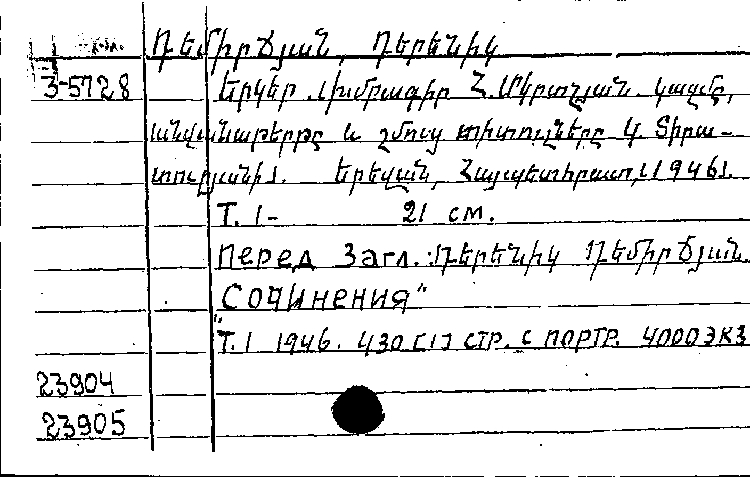 Դեմիրճյան, Դերենիկ
3-5728 Երկեր. Խմբագիր Հ. Մկրտչյան. կազմը,
անվանաթերթը և շմուտ տիտուլները Կ. Տիրա-
տուրյանի). Երևան, Հայպետհրատ, (1946).
Т. 1- 21 см.
Перед Загл.: Դերենիկ Դեմիրճյան
"Сочинения"
Т. 1 1946. 430 [1] стр. с портр. 4000 экз
23904
23905